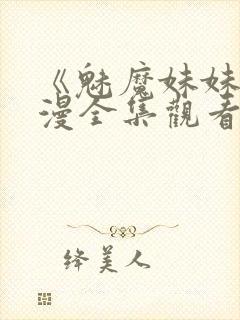 《魅魔妹妹
漫全集觀看
绛美人